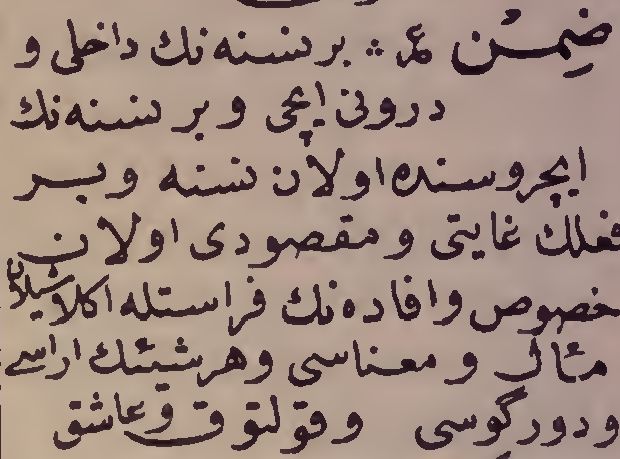 ضِمْن عر ؞ بر نسنه نك داخلی و
درونی ایچی و بر نسنه نك
ایچروسنده اولان نسنه و بر
فعلك غایتی و مقصودی اولان
خصوص وافاده نك فراستله اكلاشیلان
مئال و معناسی وهرشیئك اراسی
ودورگوسی وقولتوق وعاشق